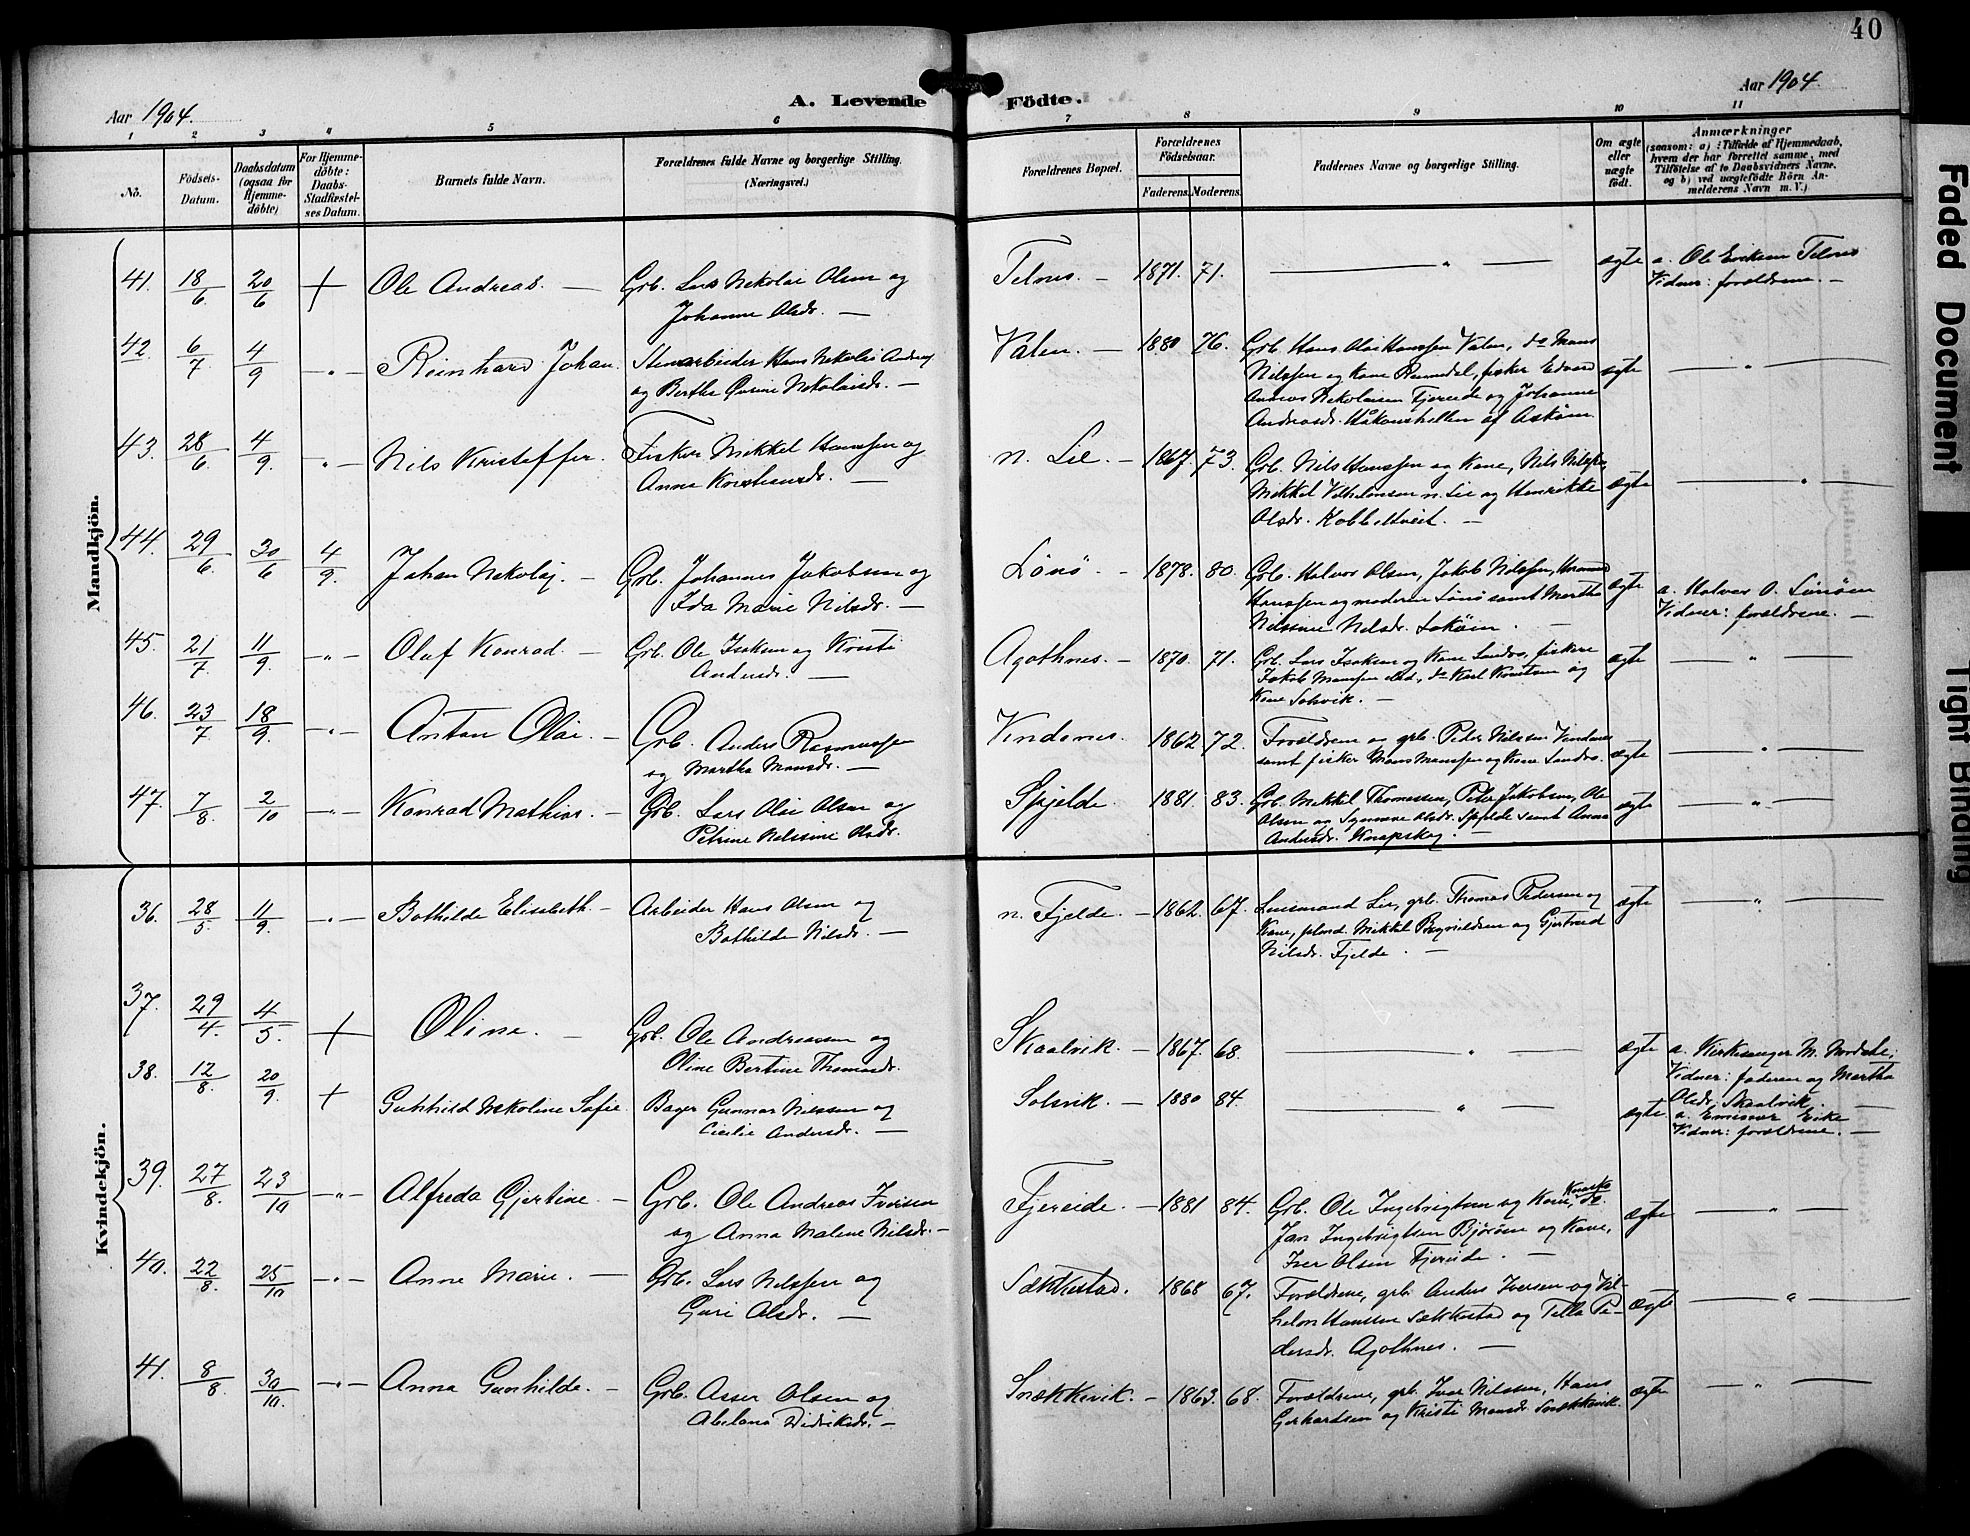 40
Aar 1904.
A. Levende
Födte.
Aar 1904
1 2 3 4 5 6 7 8 9 10 11
No.
Födsels-Datum.
Daabsdatum (ogsaa for Hjemme-döbte)
For Hjemme-döbte: Daabs-Stadfæstel-ses Datum.
Barnets fulde Navn.
Forældrenes fulde Navne og borgerlige Stilling.
(Næringsvei.)
Forældrenes Bopæl.
Forældrenes Födselsaar.
Faderens. Moderens.
Faddernes Navne og borgerlige Stilling.
Om ægte eller uægte født.
Anmærkninger
(saasom: a) Tilfælde af Hjemmedaab,
hvem der har forrettet samme, med
Tilföielse af to Daabsvidners Navne.
og b) ved uægtefödte Börn An-
melderens Navn m. V.)
Mandkjön.
41. 18/6 20/6 + Ole Andreas. — Grb. Lars Nikolai Olsen og
Johanne Olsdr. —
Telnes. — 1871. 71. — " — ægte a. Ole Eriksen Telnes
Vidner: forældrene. —
42. 6/7 4/9 — " — Reinhard Johan. Stenarbeider Hans Nikolai Anders
og Berthe Nikolaisdr. —
Valen. — 1880 76. Grb. Hans Olai Hanssen Valen, do Mons
Nilssen og Kone, fisker Edvard
Andreas Nikolaisen Fjereide og Johanne
Andreasdr. Håkonshellen af Askøen.
ægte — " —
43. 28/6 4/9. — " — Nils Kristoffer. Fisker Mikkel Hanssen og
Anna Kristiansdr. —
n. Lie. — 1867. 73. Grb. Nils Hanssen og Kone, Nils Nilssen
Mikkel Vilhelmsen n. Lie og Henrikke
Olsdr. Kobbeltveit. —
ægte — " —
44. 29/6 30/6 4/9. Johan Nikolaj. — Grb. Johannes Jakobsen og
Ida Marie Nilsdr. —
Lönö. — 1878. 80. Grb. Halvor Olsen, Jakob Nilssen,
Hanssen og moderen Lönö samt Martha
Nilssine Nilsdr. —
ægte a. Halvor O. Lönöen
Vidner: forældrene. —
45. 21/7 11/9. — " — Olaf Konrad. — Grb. Ole Isaksen og Kristi
Andersdr. —
Agothnes. — 1870. 71. Grb. Lars Isaksen og Kone Landro, fiskere
Jakob Monssen, do Karl Knutsen og
Kone Solsvik. —
ægte — " —
46. 23/7 18/9. — " — Anton Olai. — Grb. Anders Rasmussen
og Martha Monsdr. —
Vindenes. 1862 72. Forældrene og grb. Peder Nilssen Vindenes
samt fisker Mons Monssen og Kone Landro.
ægte — " —
47. 7/8. 2/10 — " — Konrad Mathias. — Grb. Lars Olai Olsen og
Petrine Nilssine Olsdr.
Spjelde. 1881. 83. Grb. Mikkel Thomassen, Peter Jakobsen, Ole
Olsen og Synnøve Olsdr. Spjelde samt Anna
Andersdr. Knapskog. —
ægte — " —
Kvindekjön.
36. 28/5. 11/9. — " — Bothilde Elisabeth. — Arbeider Hans Olsen og
Bothilde Nilsdr. —
n. Fjelde. — 1862. 67. Lensmand Lie, grb. Thomas Pedersen og
Kone, Mikkel Brynildsen og Gjertrud
Nilsdr. Fjelde. —
ægte — " —
37. 29/4. 4/5. + Oline. — Grb. Ole Andreassen og
Oline Bertine Thomasdr.
Skaalvik. — 1867. 68. — " — ægte a. Kirkesanger M. Nordahl;
Vidner: faderen og Martha
Olsdr. Skaalvik. —
38. 12/8. 20/9. + Gunhild Nikoline Sofie. Bager Gunnar Nilssen og
Cecilie Andersdr. —
Solsvik. — 1880 84. — " — ægte a. Emissær Eike
Vidner: forældrene. —
39. 27/8. 23/10 — " — Alfreda Gjertine. — Grb. Ole Andreas Iversen
og Anna Malene Nilsdr. —
Fjereide. — 1881 84. Grb. Ole Ingebrigtsen og Kone, do.
Jan Ingebrigtsen Björöen og Kone,
Iver Olsen Fjereide. —
ægte — " —
40. 22/8. 25/10 — " — Anne Marie. — Grb. Lars Nilssen og
Guri Olsdr. —
Sækkestad. 1868 67. Forældrene, grb. Anders Iversen og Vil-
helm Hanssen Sækkestad og Tella Pe-
dersdr. Agothnes. —
ægte — " —
41. 8/8. 30/10. — " — Anna Gunhilde. — Grb. Asser Olsen og
Abelona Didriksdr. —
Snekkevik. — 1863. 68. Forældrene, grb. Ivar Nilssen, Hans
Gerhardsen og Kristi Monsdr. Snekkevik.
ægte — " —
Faded Document
Tight Binding